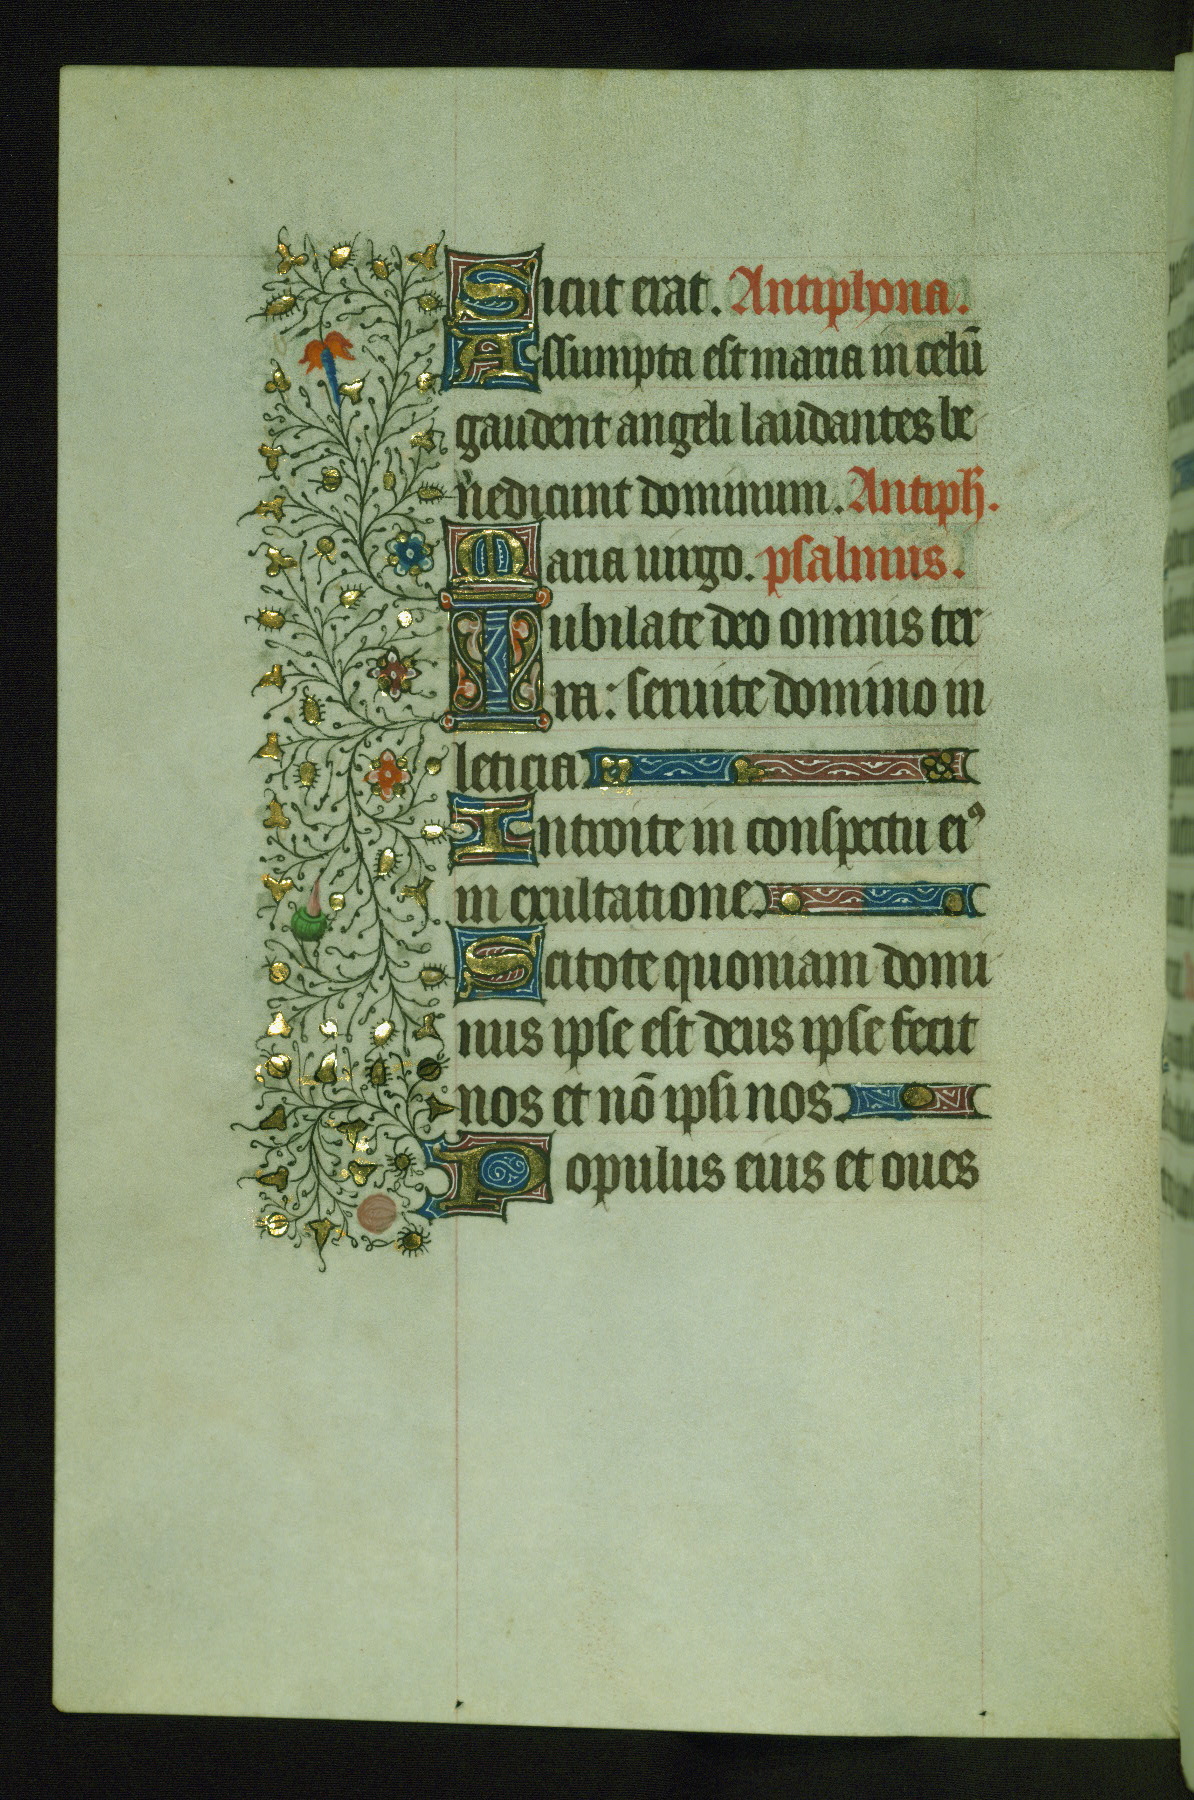 Sicut erat. Antiphona.
Assumpta est maria in celū
gaudent angeli laudantes be
nedicunt dominum. Antiph.
Maria uirgo. psalmus.
Iubilate deo omnis ter
ra: seruite domino in
leticia
Introite in conspectu eiꝰ
in exultatione.
Scitote quoniam domi
nus ipse est deus ipse fecit
nos et nō ipsi nos
Populus eius et oues